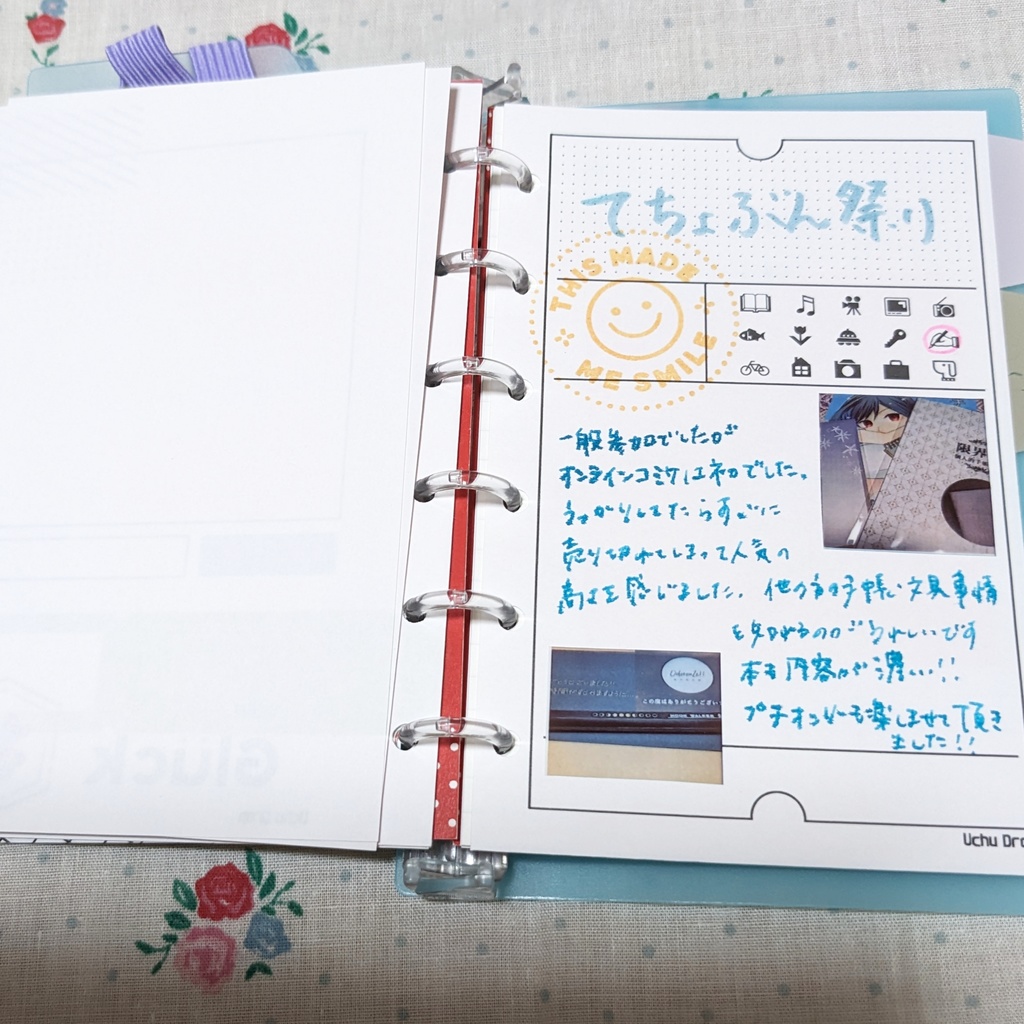 てちょぶん祭り
THIS MADE
ME SMILE
一般参加でしたが
オンラインコミケは初でした。
うっかりしてたらすぐに
売り切れてしまって人気の
高さを感じました。他の方の手帳、文具事情
を知れるのがうれしいです
本も内容が濃い!!
プチオンリーも楽しませて頂き
ました!!
限界
この度はありがとうござい
Gluck
Uchu Dro